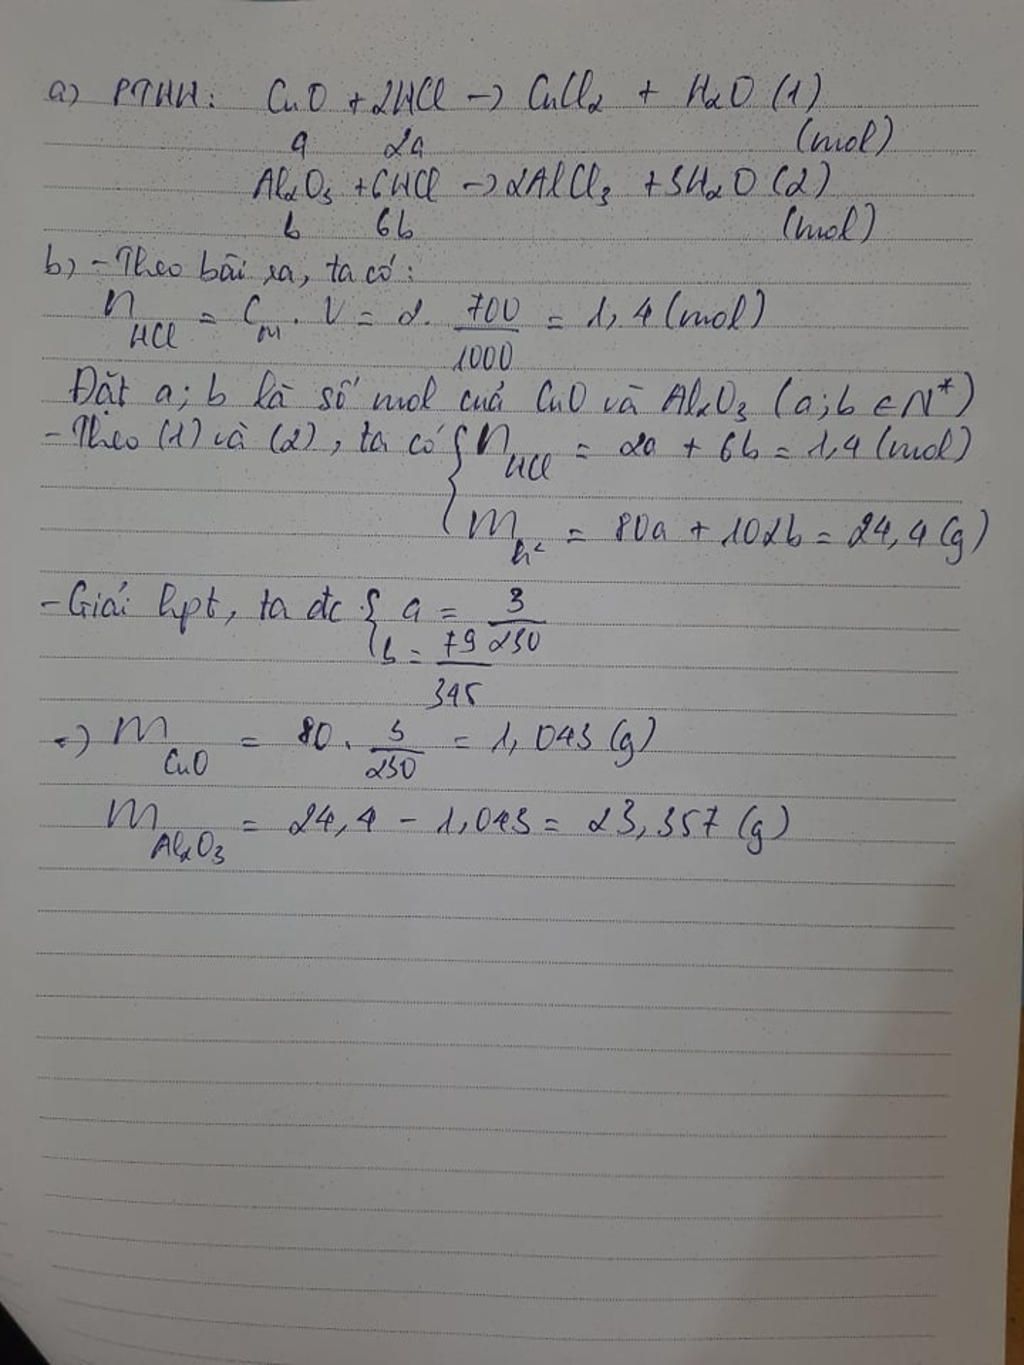 a) PTHH: CuO + 2HCl -> CuCl2 + H2O (1)
a 2a (mol)
Al2O3 + 6HCl -> 2AlCl3 + 3H2O (2)
b 6b (mol)
b) - Theo bài ra, ta có:
nHCl = CM . V = 2. 700/1000 = 1,4 (mol)
Đặt a; b là số mol của CuO và Al2O3 (a; b ∈ N*)
- Theo (1) và (2), ta có { nHCl = 2a + 6b = 1,4 (mol)
mh² = 80a + 102b = 24,4 (g)
- Giải hpt, ta đc { a = 3/230
b = 79/345
=) mCuO = 80 . 3/230 = 1,043 (g)
mAl2O3 = 24,4 - 1,043 = 23,357 (g)